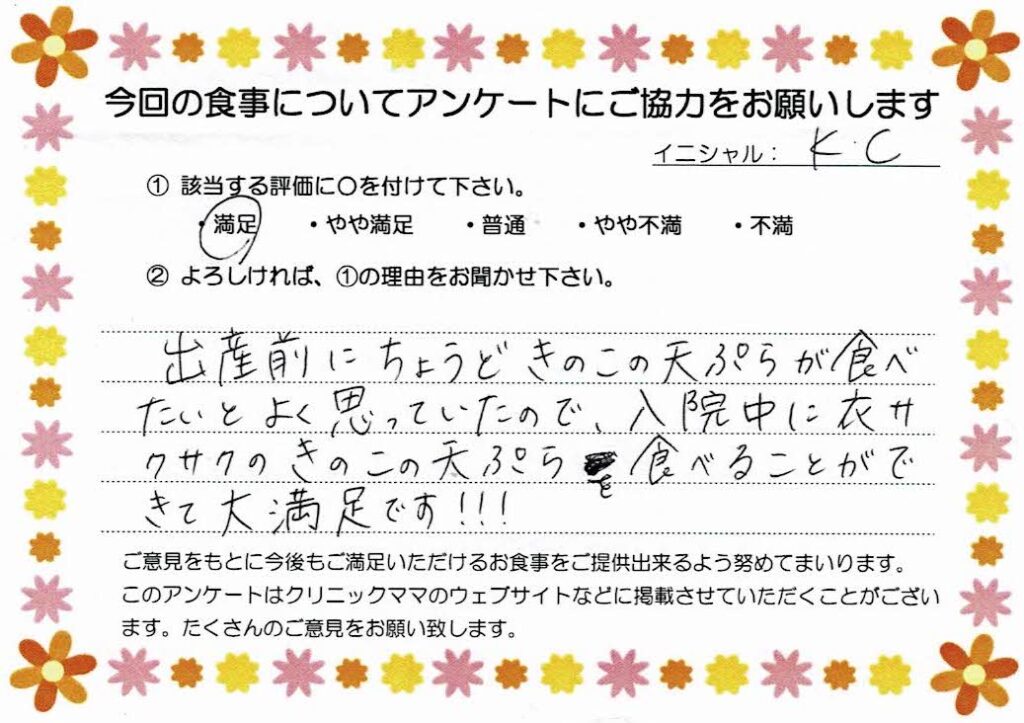 今回の食事についてアンケートにご協力をお願いします
イニシャル： K.C
① 該当する評価に○を付けて下さい。
・満足 ・やや満足 ・普通 ・やや不満 ・不満
② よろしければ、①の理由をお聞かせ下さい。
出産前にちょうどきのこの天ぷらが食べ
たいとよく思っていたので、入院中に衣サ
クサクのきのこの天ぷらを食べることがで
きて大満足です!!!
ご意見をもとに今後もご満足いただけるお食事をご提供出来るよう努めてまいります。
このアンケートはクリニックママのウェブサイトなどに掲載させていただくことがござい
ます。たくさんのご意見をお願い致します。